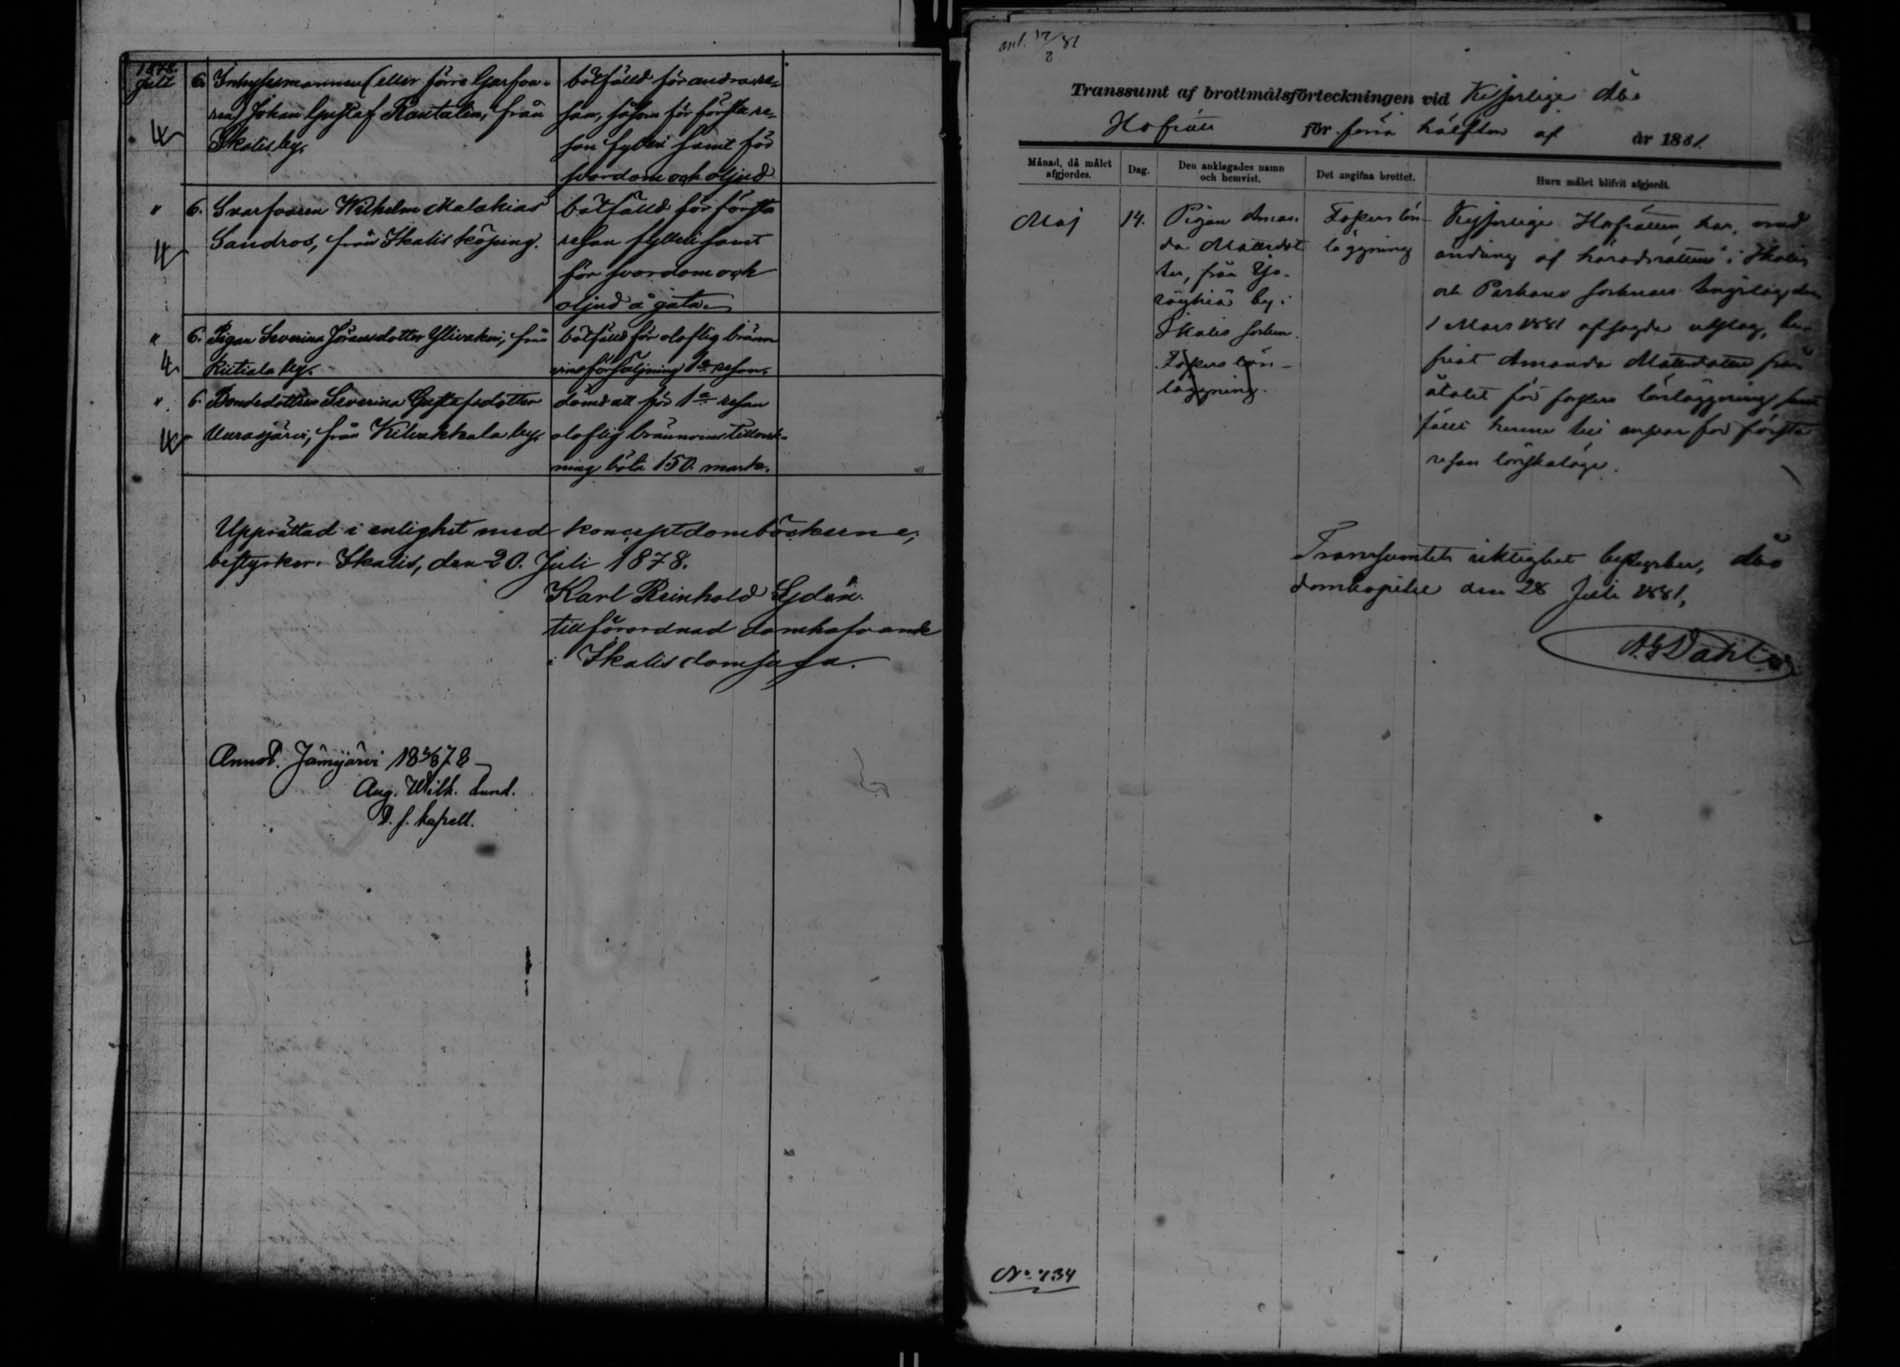 1878
Juli
6. Inhysesmannen (eller förre Garfva-
ren) Johan Gustaf Rantalin, från
Ikalis by.
bötfälld för andra re-
san, såsom för första re-
san fylleri samt för
svordom och oljud
" 6. Svarfvaren Wilhelm Malakias
Sandros, från Ikalis köping.
bötfälld för första
resan fylleri samt
för svordom och
oljud å gata.
" 6. Pigan Severina Jöransdotter Ylivaken, från
by.
bötfälld för oloflig bränn-
vinsförsäljning 1a resan.
" 6. Bondedottren Severina Gustafsdotter
Uurasjärvi, från Kilvakkala by,
dömd att för 1a resan
oloflig brännvins tillverk-
ning böta 150 mark.
Upprättad i enlighet med konceptdomböckerne,
bestyrker. Ikalis, den 20. Juli 1878.
Karl Reinhold
tillförordnad domhafvande
i Ikalis domsaga.
Annot. Jämijärvi 18 78
Aug. Wilh. Lund.
kapell.
ank. /81
Transsumt af brottmålsförteckningen vid Kejserlige Åbo
Hofrätt för förra hälften af år 1881.
Månad, då målet
afgjordes.
Dag.
Den anklagades namn
och hemvist.
Det angifna brottet.
Huru målet blifvit afgjordt.
Maj
14.
Pigan Aman-
da Mattsdot-
ter, från
by i
Ikalis socken.
Fosters lön-
läggning.
Fosters lön-
läggning
Kejserlige Hofrätten har, med
ändring af häradsrättens i Ikalis
och Parkano socknars tingslag den
1 Mars 1881 afsagda utslag, be-
friat Amanda Mattsdotter från
åtalet för fosters lönläggning samt
fällt henne till ansvar för första
resan lönskaläge.
Transsumtets riktighet bestyrker, Åbo
domkapitel den 28 Juli 1881,
A G Dahl
No 734